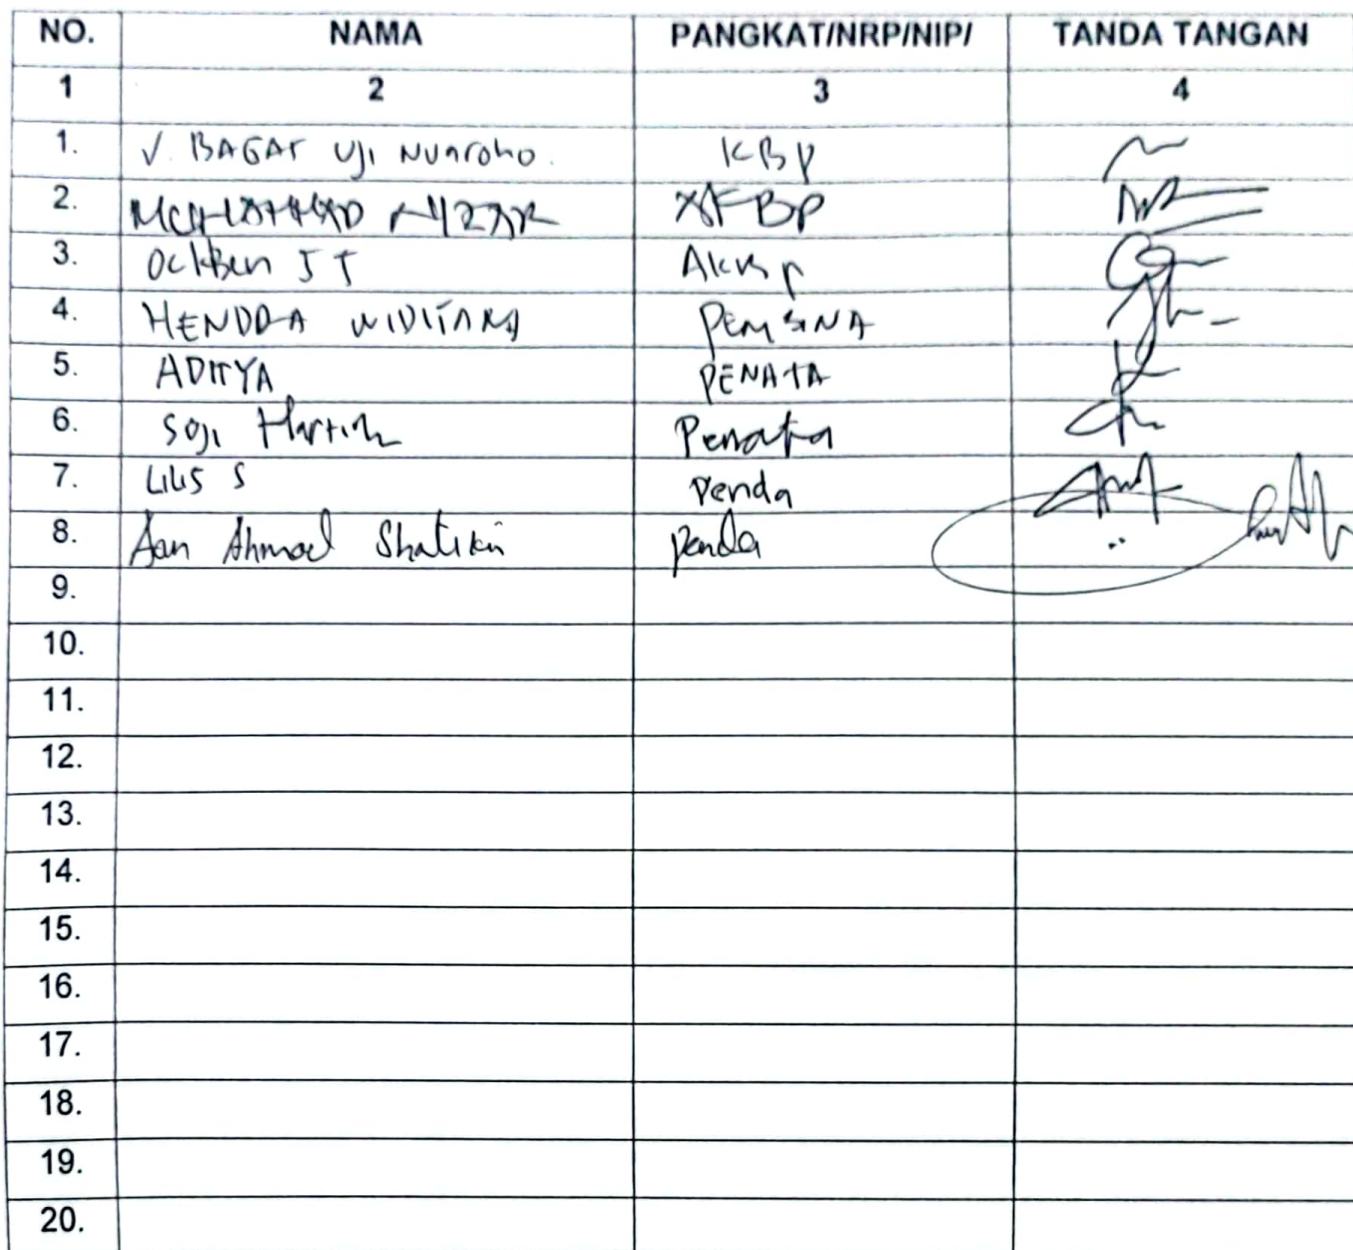 NO. NAMA PANGKAT/NRP/NIP/ TANDA TANGAN
1 2 3 4
1. V. BAGAS Uji Nugroho. KBP
2. MUHAMMAD NIZAR AKBP
3. Ockben ST AKBP
4. HENDRA WIDITAMA PEMBINA
5. ADITYA PENATA
6. Penata
7. LILIS S Penda
8. Aan Ahmad Penda
9.
10.
11.
12.
13.
14.
15.
16.
17.
18.
19.
20.